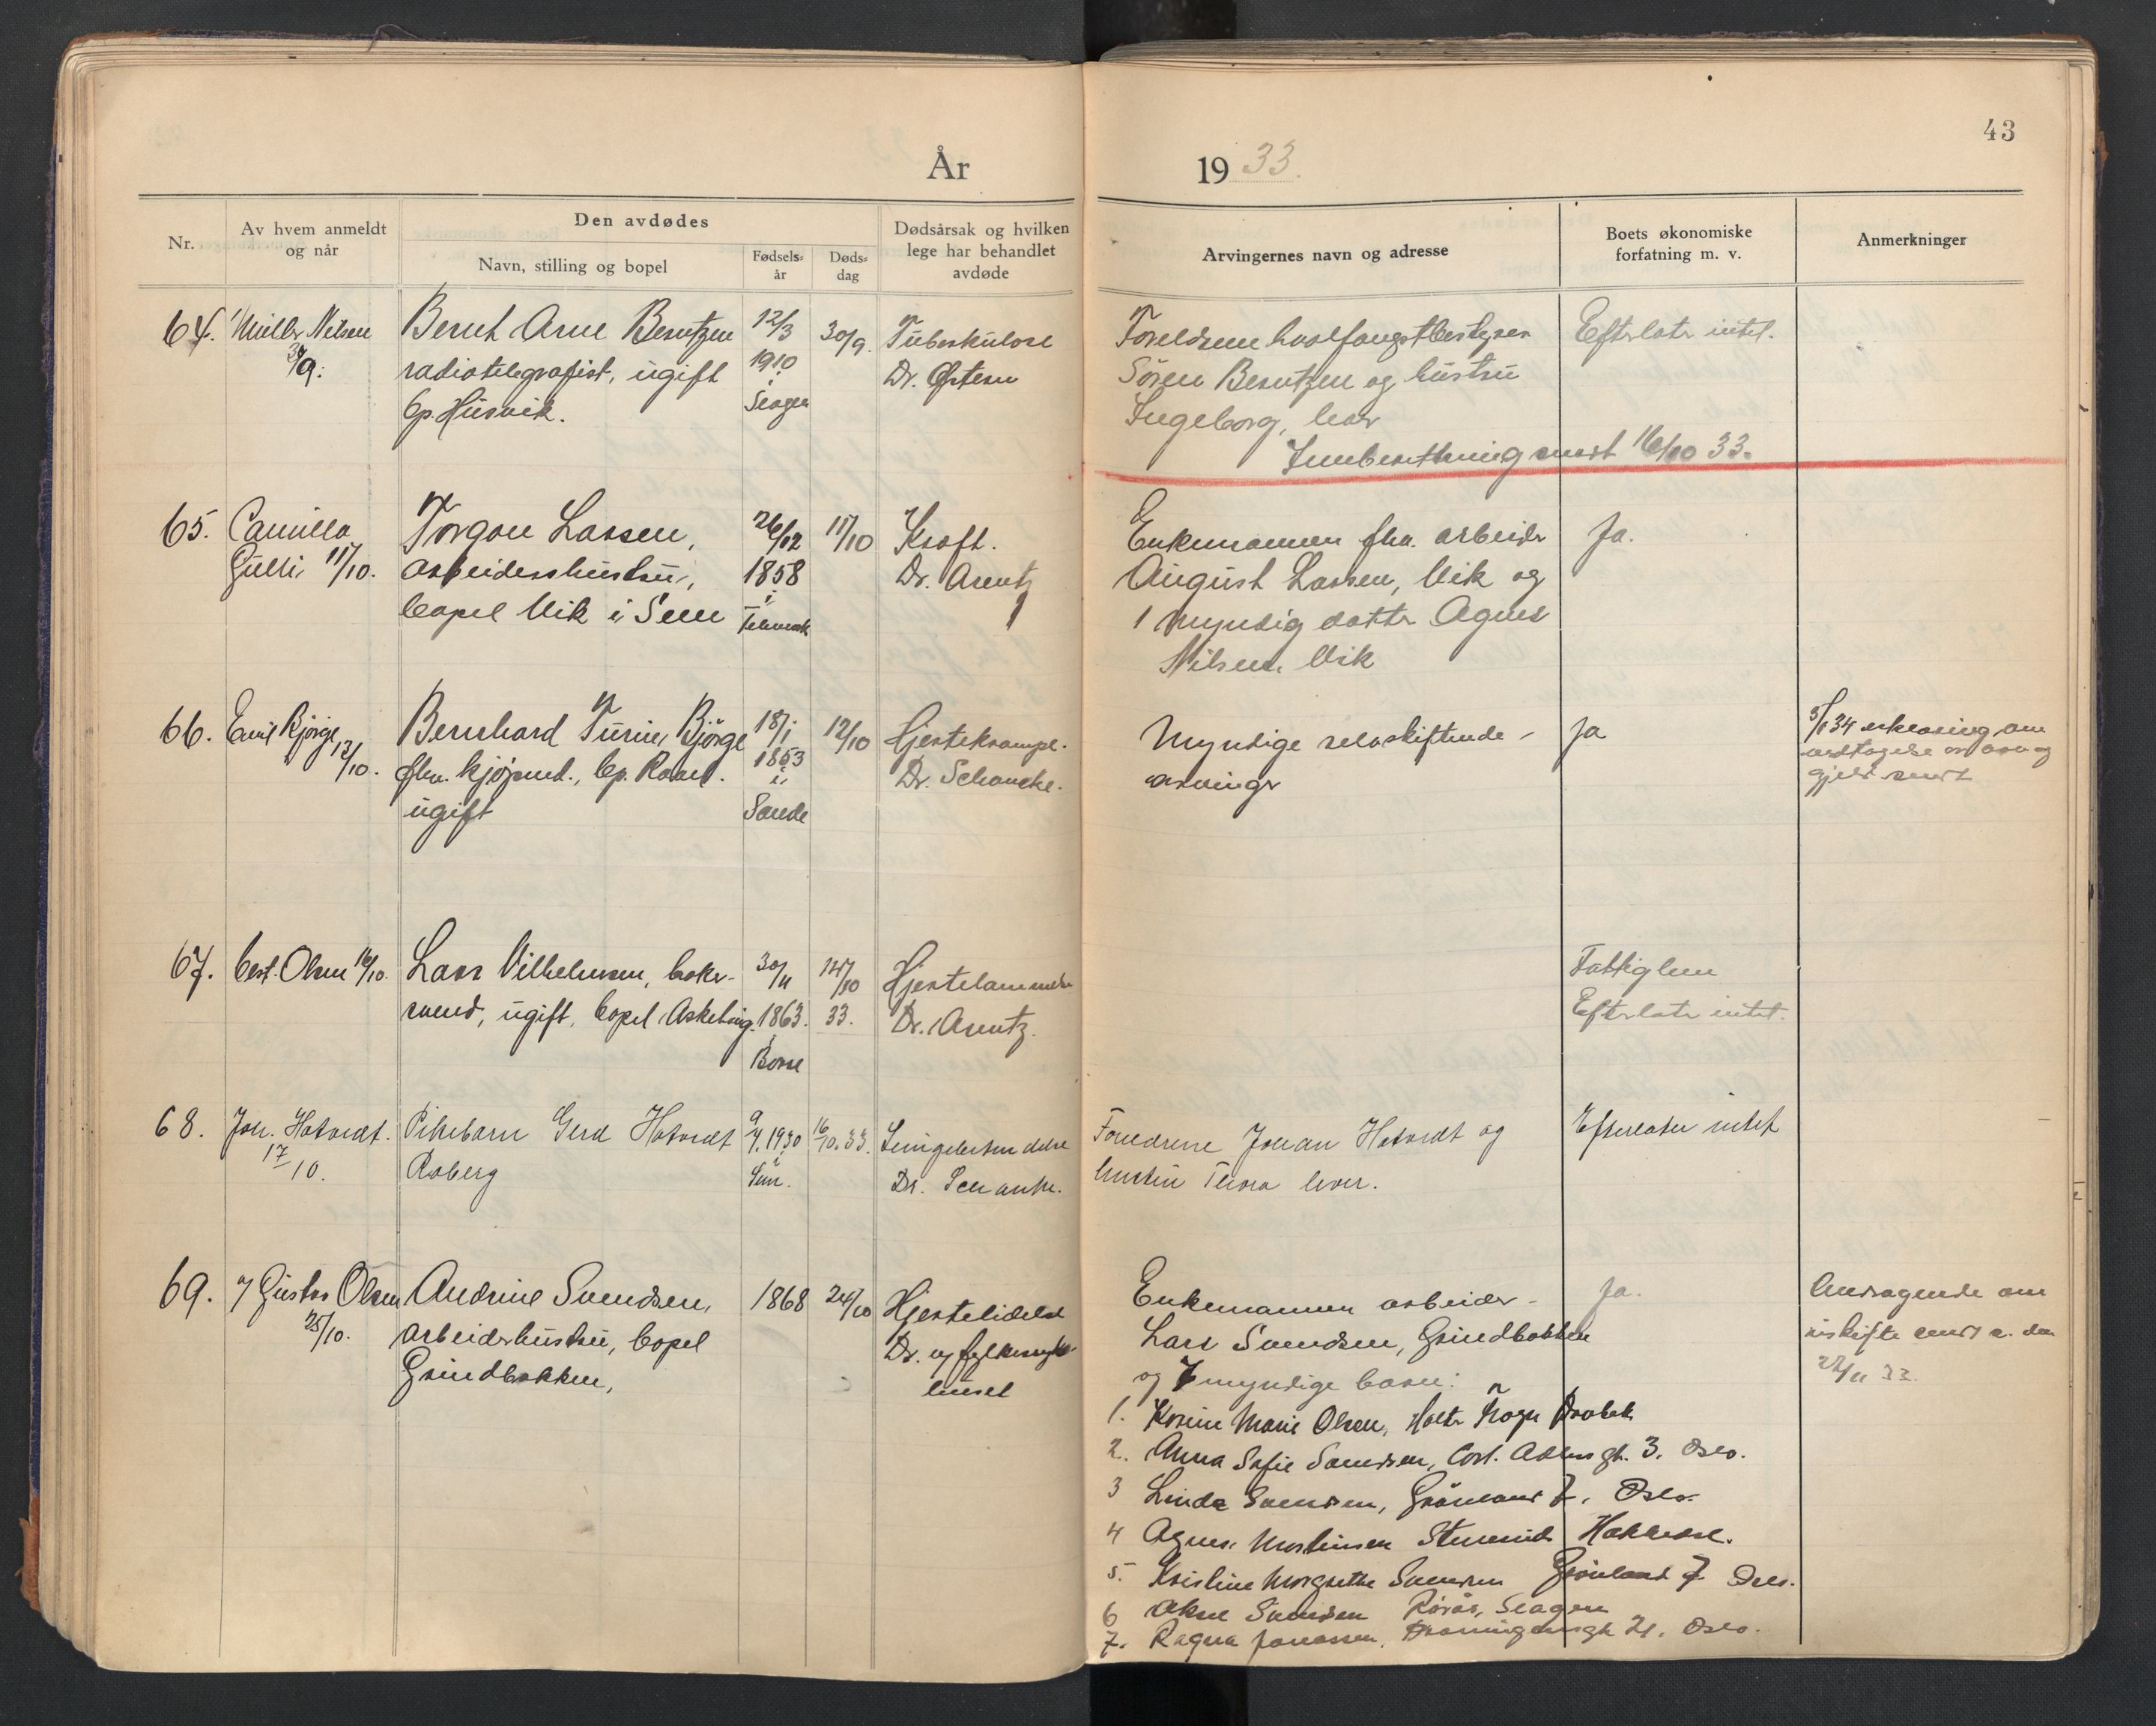 43
År 1933.
Nr.
Av hvem anmeldt
og når
Den avdødes
Navn, stilling og bopel
Fødsels-
år
Døds-
dag
Dødsårsak og hvilken
lege har behandlet
avdøde
Arvingernes navn og adresse
Boets økonomiske
forfatning m. v.
Anmerkninger
64.
Nilsen
30/9.
Bernt Arne Berntzen
radiotelegrafist, ugift
bp. Husvik.
12/3
1910
i
Slagen
30/9.
Tuberkulose
Dr. Østern
Foreldrene hvalfangstbestyrer
Sören Berntzen og hustru
Ingeborg, lever
Innberetning sendt 16/10 33.
Efterlater intet.
65.
Camilla
Gulli 11/10.
Torgon Larsen,
arbeidershustru,
bopel Vik i Sem
26/12
1858
i
Telemark
11/10
Kreft.
Dr. Arentz
Enkemannen fhv. arbeider
August Larsen, Vik og
1 myndig datter Agnes
Nilsen, Vik
Ja.
66.
Emil Bjørge
13/10.
Bernhard Björge
fhv. kjøpmd., bp. Råel.
ugift
18/1
1853
i
Sande
12/10
Hjertekrampe.
Dr. Schancke.
Myndige selvskiftende
arvinger
Ja
3/1 34 erklæring om
vedtagelse av arv og
gjeld sendt
67.
best. Olsen 16/10.
Lars Vilhelmsen, baker-
svend, ugift, bopel Askehaug.
30/11
1863.
i
Borre
14/10
33.
Hjertelammelse
Dr. Arentz.
Fattiglem
Efterlater intet.
68.
Joh. Hotvedt.
17
10.
Pikebarn Gerd Hotvedt
Råberg
9/4.1930
i
Sem.
16/10.33.
Lungebetendelse
Dr. Schanke.
Foreldrene Johan Hotvedt og
hustru Thora lever.
Efterlater intet
69.
Gustav Olsen
25/10.
Andrine Svendsen,
arbeiderhustru, bopel
Grindbakken,
1868
24/10
Hjertelidelse
Dr. ved fylkessyke-
huset
Enkemannen arbeider
Lars Svendsen, Grindbakken
og 7 myndige barn:
Ja.
Andragende om
uskifte sendt s. d.
22/11 33.
1. Karin Marie Olsen, Holter Drøbak
2. Anna Sofie Svendsen, Cort Adelersgt. 3. Oslo.
3 Linda Svendsen, Grönland 7. Oslo.
4 Agnes Mortensen Hakkedal.
5. Kristine Margrethe Svendsen Grönland 7 Oslo.
6 Svendsen Råsås, Slagen
7. Ragna Jonassen, Dronningensgt 21. Oslo.